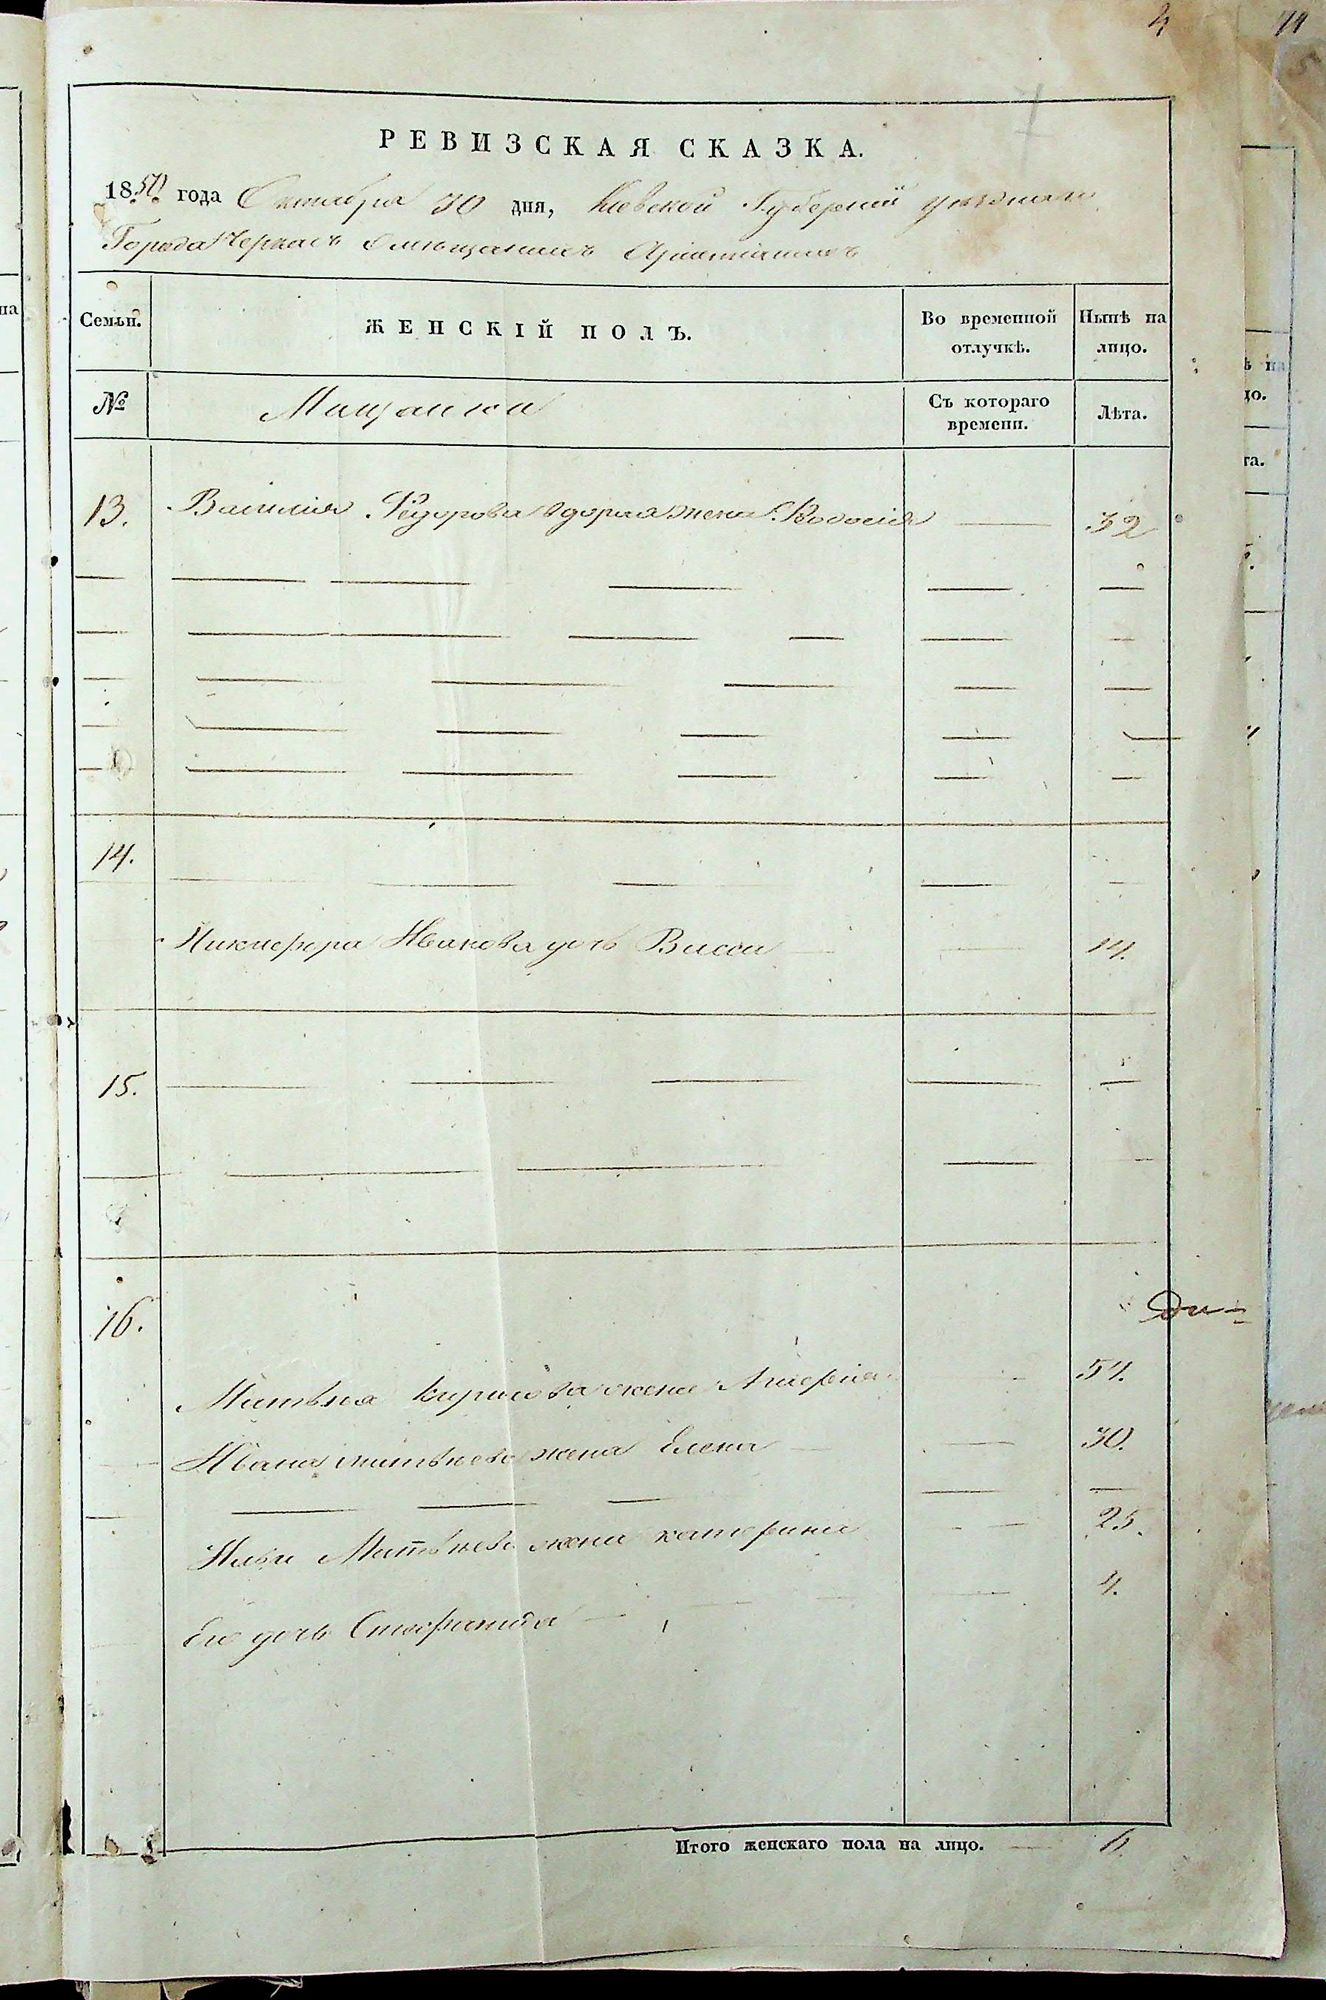 4
РЕВИЗСКАЯ СКАЗКА.
1850 года Октября 30 дня, Кіевской Губерніи уѣзднаго
Города Черкасъ о мещанахъ Христіанахъ
Семьи. ЖЕНСКІЙ ПОЛЪ. Во временной отлучкѣ. Нынѣ на лицо.
№ Мещанки Съ котораго времени. Лѣта.
13. Василия Федорова вдорая жена Феодосія 32
14.
Никифора Иванова дочь Васса 14.
15.
16.
Матвѣя Кирилова жена 54.
Ивана Матвѣева жена Елена 30.
Ильи Матвѣева жена катерина 25.
Его дочь Стефанида 4.
Итого женскаго пола на лицо. 6.